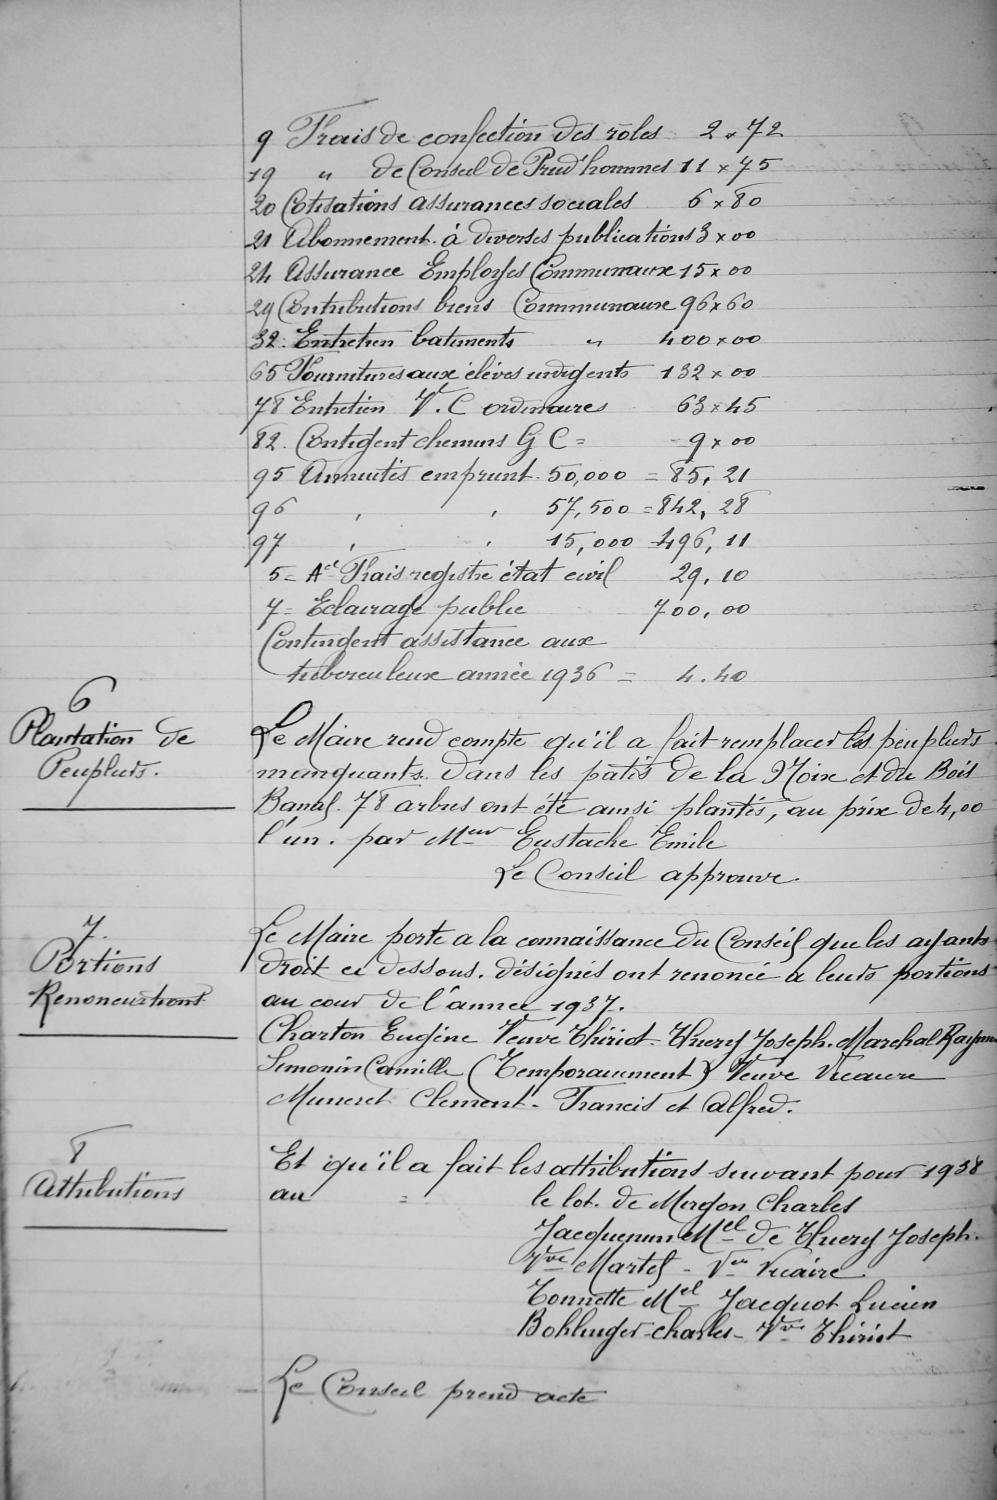 9 Frais de confection des rôles 2 x 72
19 " de Conseil de Prud'hommes 11 x 75
20 Cotisations assurances sociales 6 x 80
21 Abonnement à diverses publications 3 x 00
24 Assurance Employés Communaux 15 x 00
29 Contributions biens Communaux 96 x 60
32. Entretien batiments " 400 x 00
65 Fournitures aux élèves indigents 132 x 00
78 Entretien V. C ordinaires 63 x 45
82. Contigent chemins G C = 9 x 00
95 Annuités emprunt 50,000 = 85, 21
96 , , 57,500 = 842, 28
97 , , 15,000 = 496, 11
5 = Frais registre état civil 29, 10
7 = Eclairage public 700, 00
Contingent assistance aux
tuberculeux année 1936 = 4.40
6
Plantation de
Peupliers.
Le Maire rend compte qu'il a fait remplacer les peupliers
manquants dans les patis de la Noix et du Bois
Banal. 78 arbres ont été ainsi plantés, au prix de 4,00
l'un. par Meur Eustache Emile
Le Conseil approuve.
7.
Portions
Renonciations
Le Maire porte a la connaissance du Conseil que les ayants
droit ci dessous. désignés ont renoncé a leurs portions
au cour de l'année 1937.
Charton Eugène Veuve Thiriot. Thiery Joseph. Marchal
Simonin Camille (Temporairement) Veuve Vicaire
Muneret Clement - Francis et Alfred.
8
Attributions
Et qu'il a fait les attributions suivant pour 1938
au = le lot. de Mergon Charles
Jacquemin Mel de Thiery Joseph.
Vve Martel - Vve Vicaire
Tonnette Mel Jacquot Lucien
Bohlinger Charles - Vve Thiriot
Le Conseil prend acte